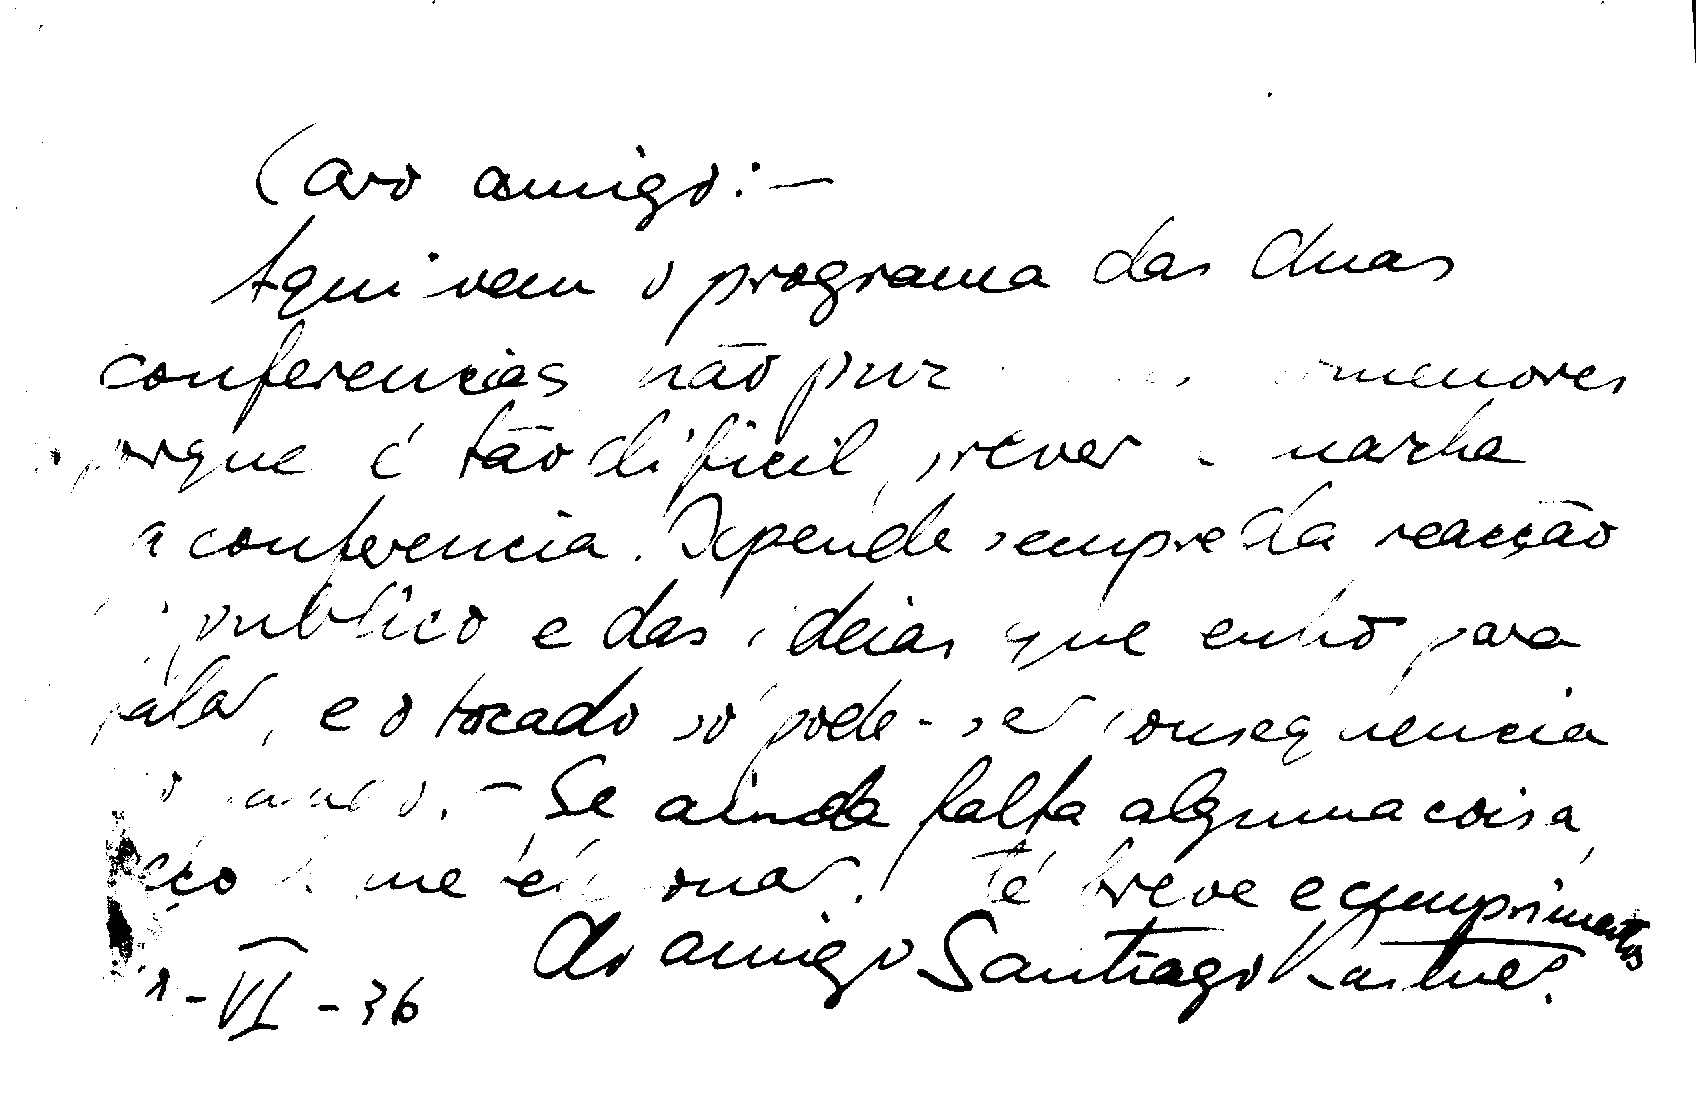 Caro amigo: —
Aqui vem o programa das duas
conferencias não por menores
porque é tão dificil prever a marcha
a conferencia. Depende sempre da reacção
publico e das ideias que tenho para
falar, e o tocado só pode-ser consequencia
. — Se ainda falta alguma coisa,
peço me telefonar. Té breve e cumprimentos
do amigo Santiago Kastner.
-VI-36